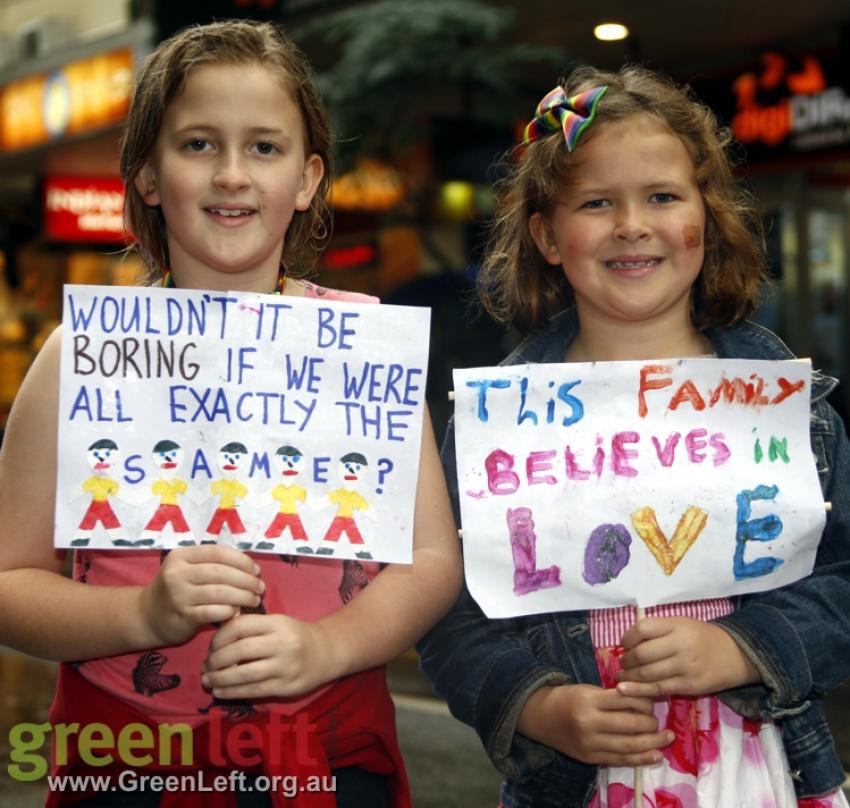 WOULDN'T IT BE
BORING IF WE WERE
ALL EXACTLY THE
SAME?
THis FAMiLY
BELiEVES iN
LOVE
INDIAN
green left
www.GreenLeft.org.au